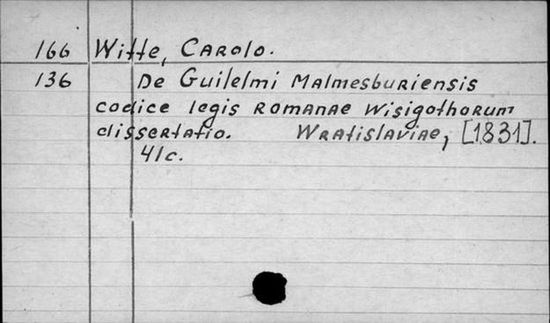 166 Witte, Carolo.
136 De Guilelmi Malmesburiensis
codice legis Romanae Wisigothorum
dissertatio. Wratislaviae, [1831].
41c.